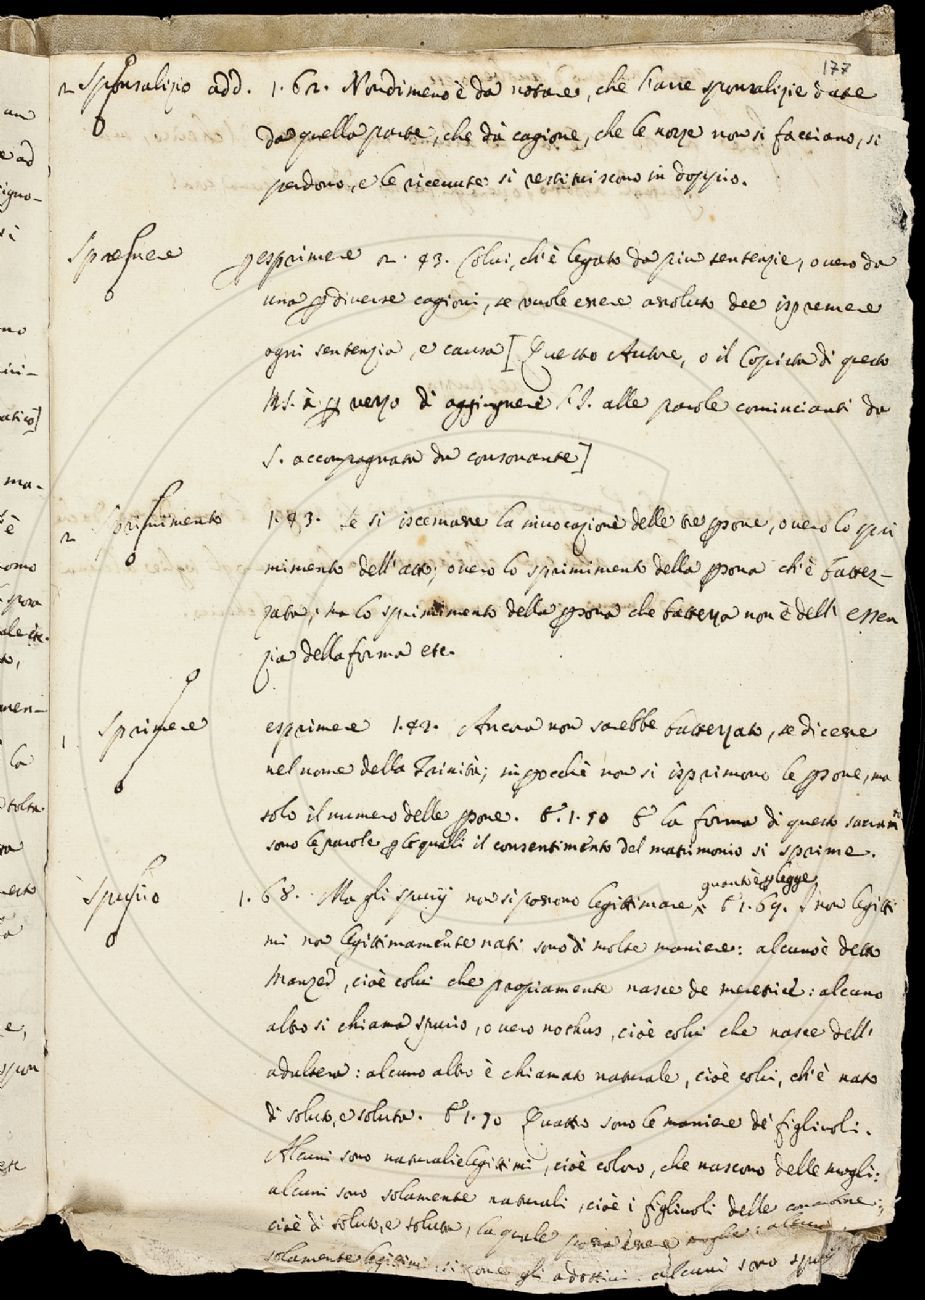 177
2 Sponsalizio add. 1. 62. Nondimeno è da notare, che l'arre sponsalizie date
da quella parte, che dà cagione, che le nozze non si facciano, si
perdono, e le ricevute si restituiscono in doppio.
Spremere p esprimere 2. 43. Colui, ch'è legato da piu sentenzie, overo da
una p diverse cagioni, se vuole essere assoluto dee ispremere
ogni sentenzia, e causa [Questo Autore, o il Copista di questo
MS. à p vezzo di aggiugnere l'I. alle parole comincianti da
S. accompagnata da consonante]
2 Sprimimento 1. 43. Se si iscemasse la invocazione delle tre psone, overo lo spri
mimento dell'atto; overo lo sprimimento della psona ch'è battez-
zata; ma lo sprimimento della psona che battezza non è dell' essen
zia della forma etc.
1 Sprimere esprimere 1. 42. Ancora non sarebbe battezzato, se dicesse
nel nome della Trinità; impocchè non si isprimono le psone, ma
solo il numero delle psone. E. 1. 50 E la forma di questo sacram
sono le parole p le quali il consentimento del matrimonio si sprime.
Spurio 1. 68. Ma gli spurij non si possono legittimare quant'è p legge E 1. 69. I non legitti
mi non legittimamente nati sono di molte maniere: alcuno è detto
Manzer, cioè colui che propiamente nasce de meretrice: alcuno
altro si chiama spurio, overo nothus, cioè colui che nasce dell'
adultera: alcuno altro è chiamato naturale, cioè colui, ch'è nato
di soluto, e soluta. E 1. 70 Quatto sono le maniere de figliuoli.
Alcuni sono naturali e legittimi, cioè coloro, che nascono delle mogli:
alcuni sono solamente naturali, cioè i figliuoli delle
cioè di soluto, e soluta, la quale possa essere moglie: alcuni
solamente legittimi, siccome gli adottivi: alcuni sono spurij